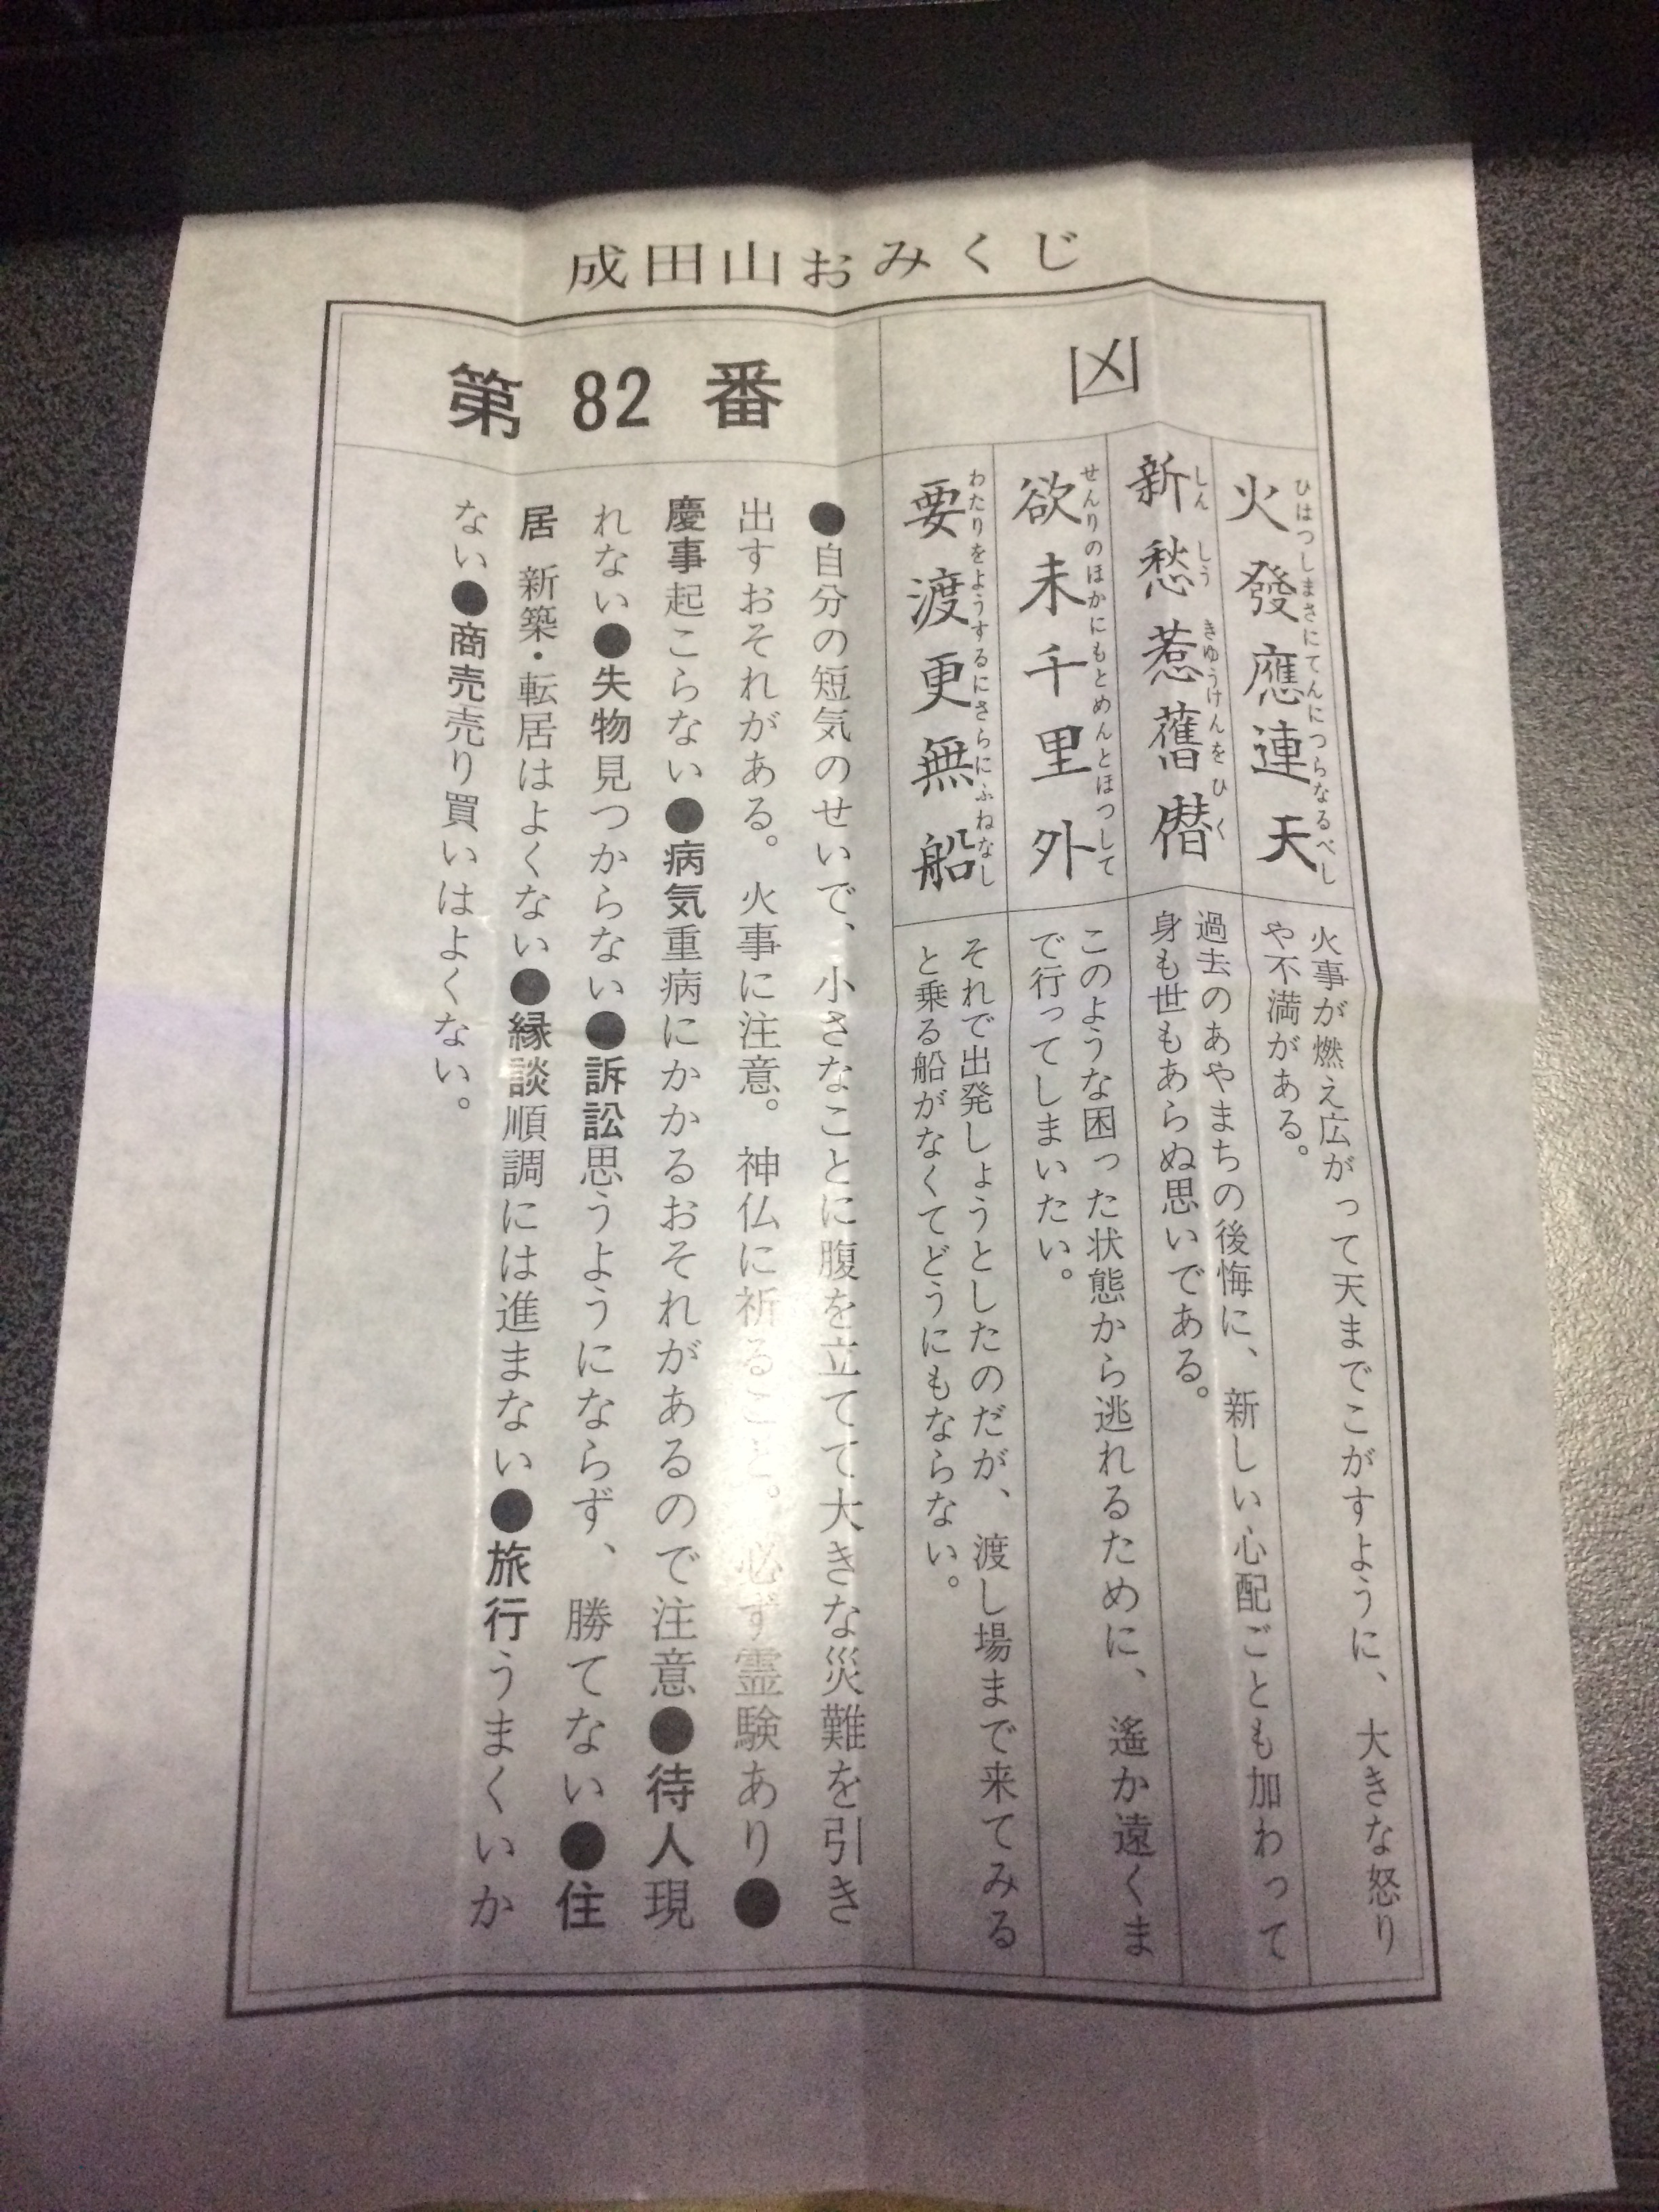 成田山おみくじ
凶
火發應連天
ひはつしまさにてんにつらなるべし
火事が燃え広がって天までこがすように、大きな怒り
や不満がある。
新愁惹舊
しんしうきゆうけんをひく
過去のあやまちの後悔に、新しい心配ごとも加わって
身も世もあらぬ思いである。
欲未千里外
せんりのほかにもとめんとほつして
このような困った状態から逃れるために、遙か遠くま
で行ってしまいたい。
要渡更無船
わたりをようするにさらにふねなし
それで出発しょうとしたのだが、渡し場まで来てみる
と乗る船がなくてどうにもならない。
第82番
●自分の短気のせいで、小さなことに腹を立てて大きな災難を引き
出すおそれがある。火事に注意。神仏に祈ること。必ず霊験あり●
慶事起こらない●病気重病にかかるおそれがあるので注意●待人現
れない●失物見つからない●訴訟思うようにならず、勝てない●住
居 新築・転居はよくない●縁談順調には進まない●旅行うまくいか
ない●商売売り買いはよくない。